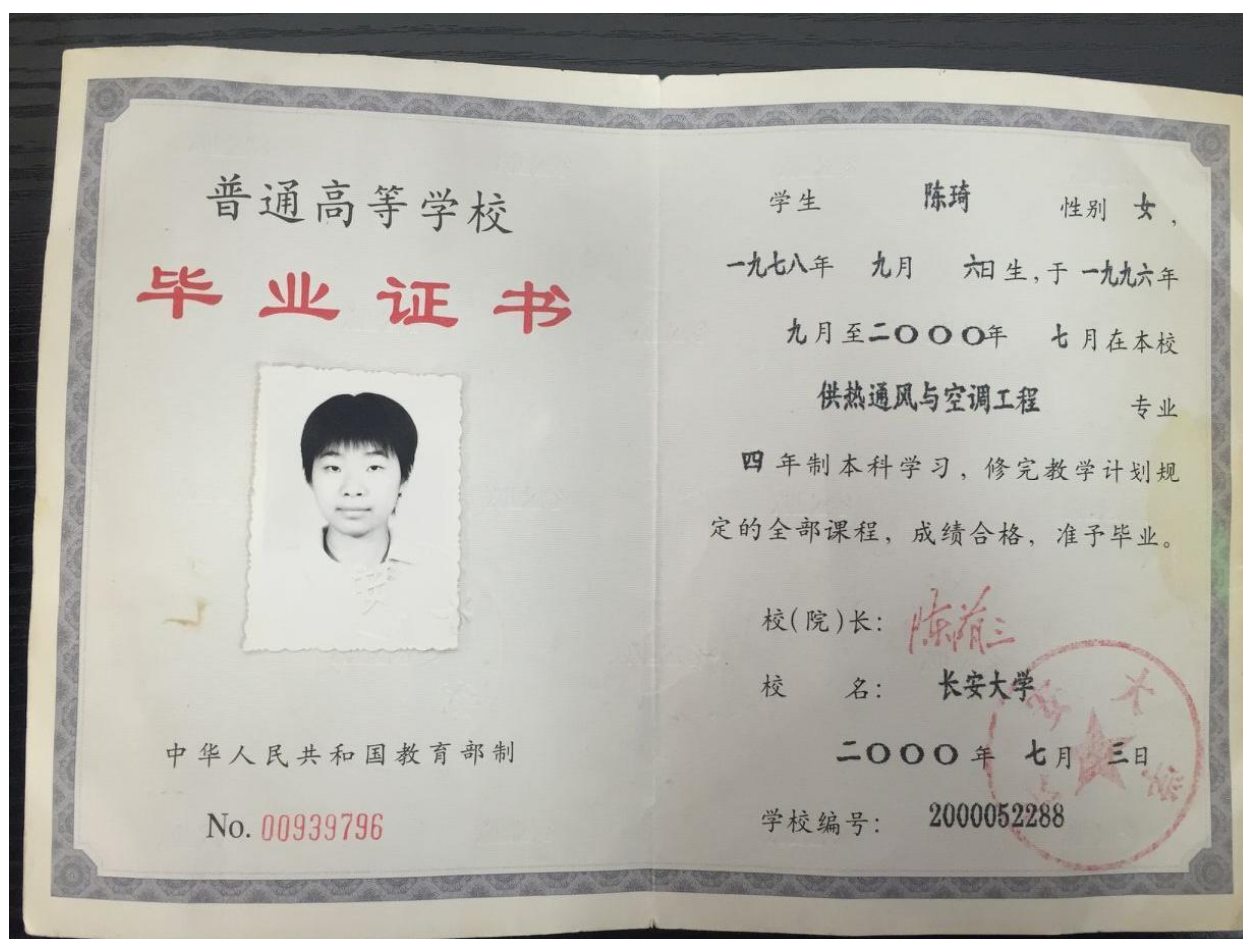 普通高等学校
毕业证书
中华人民共和国教育部制
No. 00939796
学生 陈琦 性别 女,
一九七八年 九月 六日生,于一九九六年
九月至二〇〇〇年 七月在本校
供热通风与空调工程 专业
四年制本科学习,修完教学计划规
定的全部课程,成绩合格,准予毕业。
校(院)长:
校 名: 长安大学
二〇〇〇年 七月 三日
学校编号: 2000052288